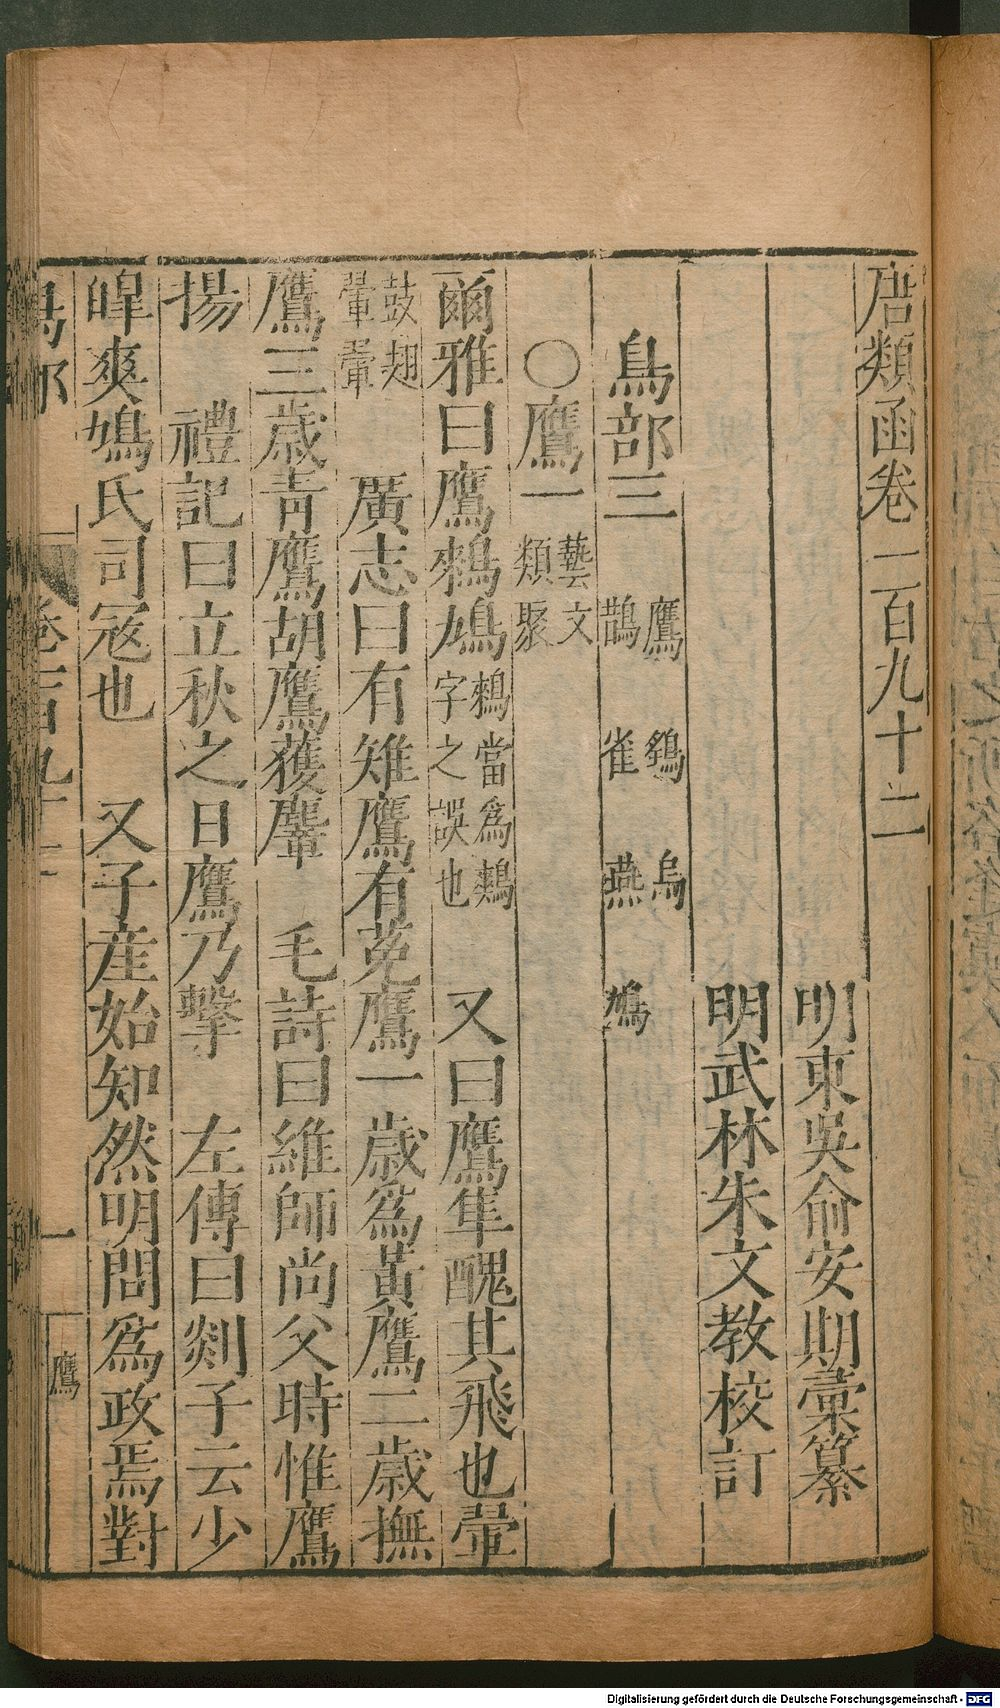 唐類函卷一百九十二
明東吳俞安期彙纂
明武林朱文教校訂
鳥部三 鷹 鷂 烏
鵲 雀 燕 鳩
○鷹一 藝文
類聚
爾雅曰鷹鶆鳩 鶆當爲鷞
字之誤也 又曰鷹隼醜其飛也翬
鼓翅
翬翬 廣志曰有雉鷹有菟鷹一歲爲黃鷹二歲撫
鷹三歲青鷹胡鷹獲麞 毛詩曰維師尚父時惟鷹
揚 禮記曰立秋之日鷹乃擊 左傳曰郯子云少
皥爽鳩氏司寇也 又子産始知然明問爲政焉對
鳥部 卷一百九十二 一 鷹
Digitalisierung gefördert durch die Deutsche Forschungsgemeinschaft - DFG